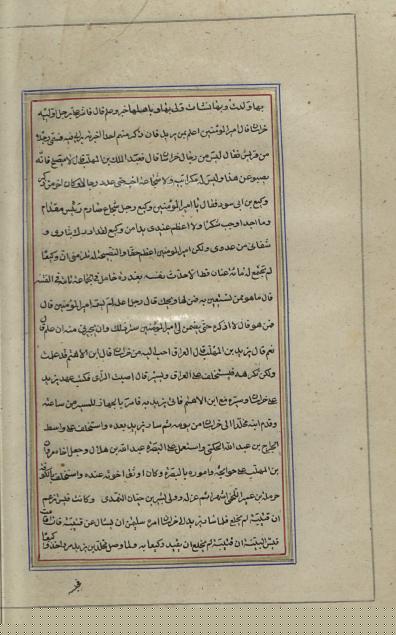 بها ولدت وبها نشأت فلي بها وباهلها خبر وعلم قال فاشر علي برجل اوليه
خراسان قال امير المؤمنين اعلم بمن يريد فان ذكر منهم احدا اخبرته برايي فيه فسمى رجلا
من قريش فقال ليس من رجال خراسان قال فعبد الملك بن المهلب قال لا يصلح فانه
يصبو عن هذا وليس له مكر ابيه ولا شجاعة اخيه حتى عدد رجالا فكان آخر من ذكر
وكيع بن ابي سود فقال يا امير المؤمنين وكيع رجل شجاع صارم رئيس مقدام
وما احد اوجب شكرا ولا اعظم عندي يدا من وكيع لقد ادرك بثاري و
شفاني من عدوي ولكن امير المؤمنين اعظم حقا والنصيحة له تلزمني ان وكيعا
لم تجتمع له مائة عنان قط الا حدث نفسه بغدرة خامل في الجماعة نابه في الفتنة
قال ما هو ممن نستعين به فمن لها ويحك قال رجل اعلمه لم يسمه امير المؤمنين قال
فمن هو قال لا اذكره حتى يضمن لي امير المؤمنين ستر ذلك وان يجيرني منه ان علم قال
نعم قال يزيد بن المهلب قال العراق احب اليه من خراسان قال ابن الاهتم قد علمت
ولكن تكرهه فيستخلف على العراق ويسير قال اصبت الراي فكتب عهد يزيد
على خراسان وسيره مع ابن الاهتم فاتى يزيد به فامر بالجهاز للمسير من ساعته
وقدم ابنه مخلدا الى خراسان من يومه ثم سار يزيد بعده واستخلف على واسط
الجراح بن عبد الله الحكمي واستعمل على البصرة عبد الله بن هلال وجعل اخاه مروان
بن المهلب على حوائجه واموره بالبصرة وكان اوثق اخوته عنده واستخلف بالكوفة
حرملة بن عمير اللخمي اشهرا ثم عزله وولى بشير بن حيان النهدي وكانت قيس تزعم
ان قتيبة لم يخلع فلما سار يزيد الى خراسان امره سليمان ان يسأل عن قتيبة فان اقامت
قيس البينة ان قتيبة لم يخلع ان يقيد وكيعا به ولما وصل مخلد بن يزيد مرو اخذ وكيعا